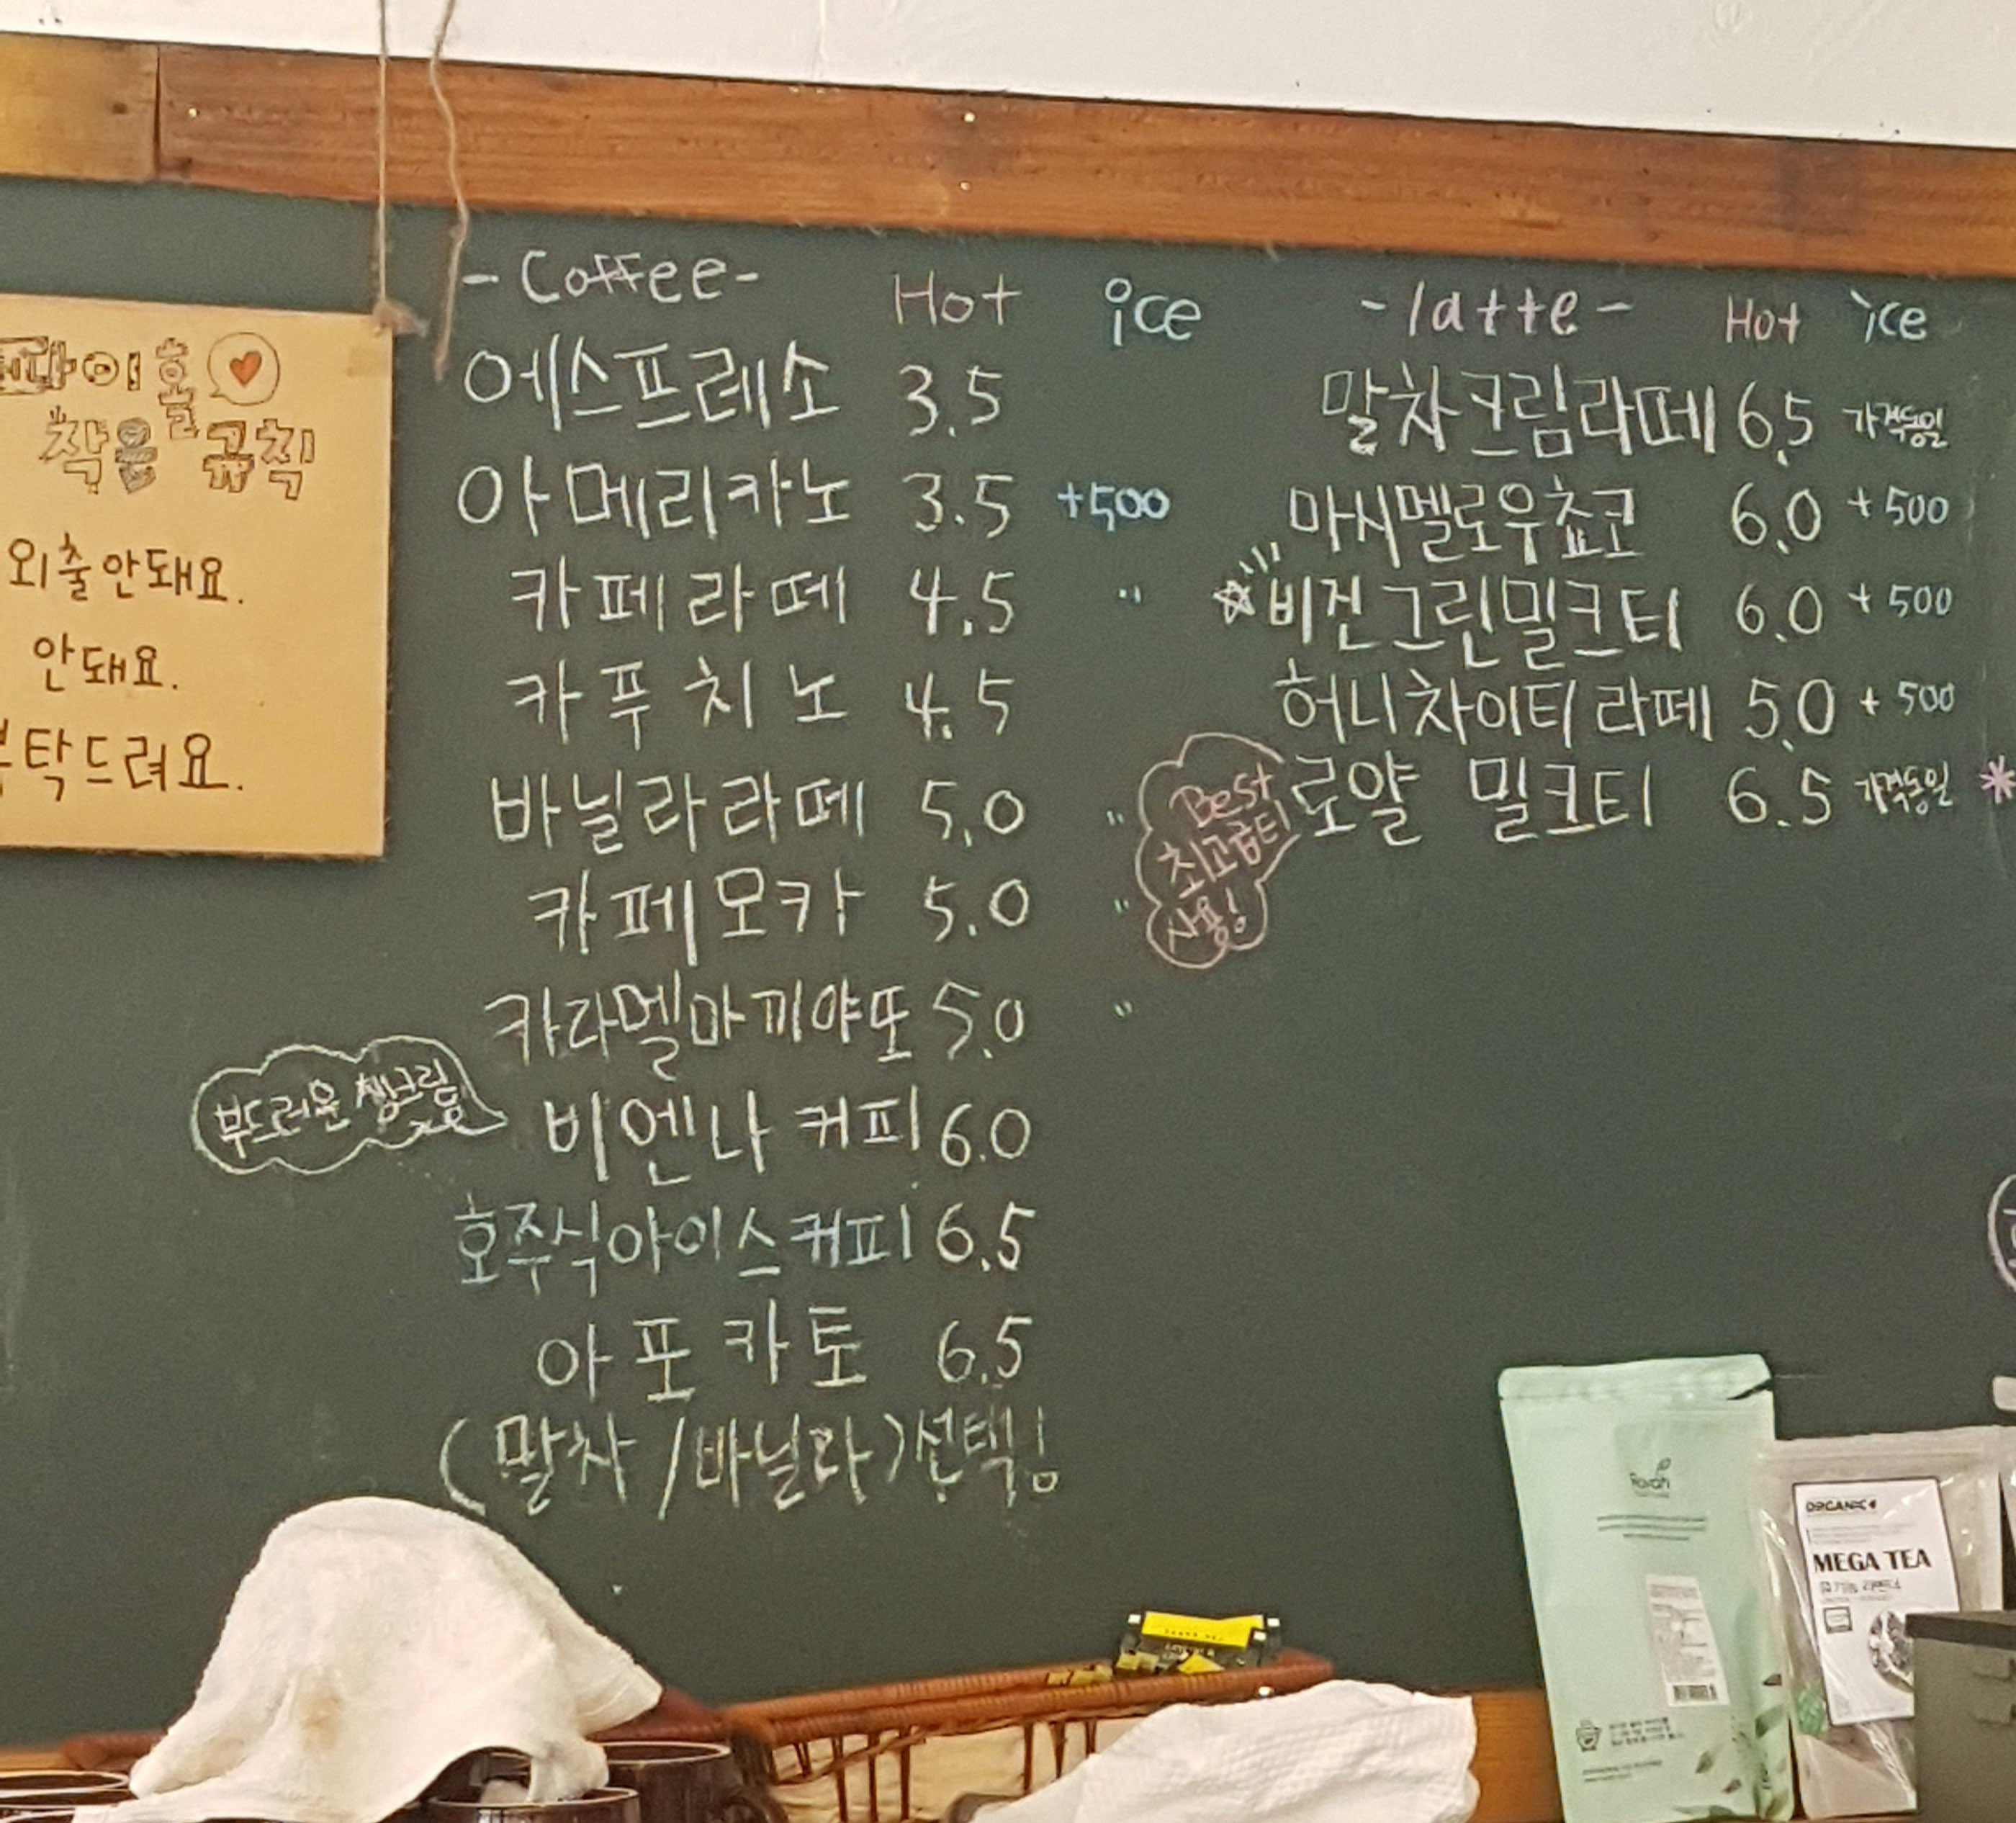 파이홀
작은 규칙
외출안돼요.
안돼요.
부탁드려요.
-Coffee- Hot ice
에스프레소 3.5
아메리카노 3.5 +500
카페라떼 4.5 〃
카푸치노 4.5
바닐라라떼 5.0 〃
카페모카 5.0 〃
카라멜마끼야또 5.0 〃
부드러운 생크림
비엔나 커피 6.0
호주식아이스커피 6.5
아포카토 6.5
(말차/바닐라)선택!
-latte- Hot ice
말차크림라떼 6.5 가격동일
마시멜로우쵸코 6.0 +500
☆비건그린밀크티 6.0 +500
허니차이티라떼 5.0 +500
로얄 밀크티 6.5 가격동일 *
Best
최고급티
사용!
ORGANIC
MEGA TEA